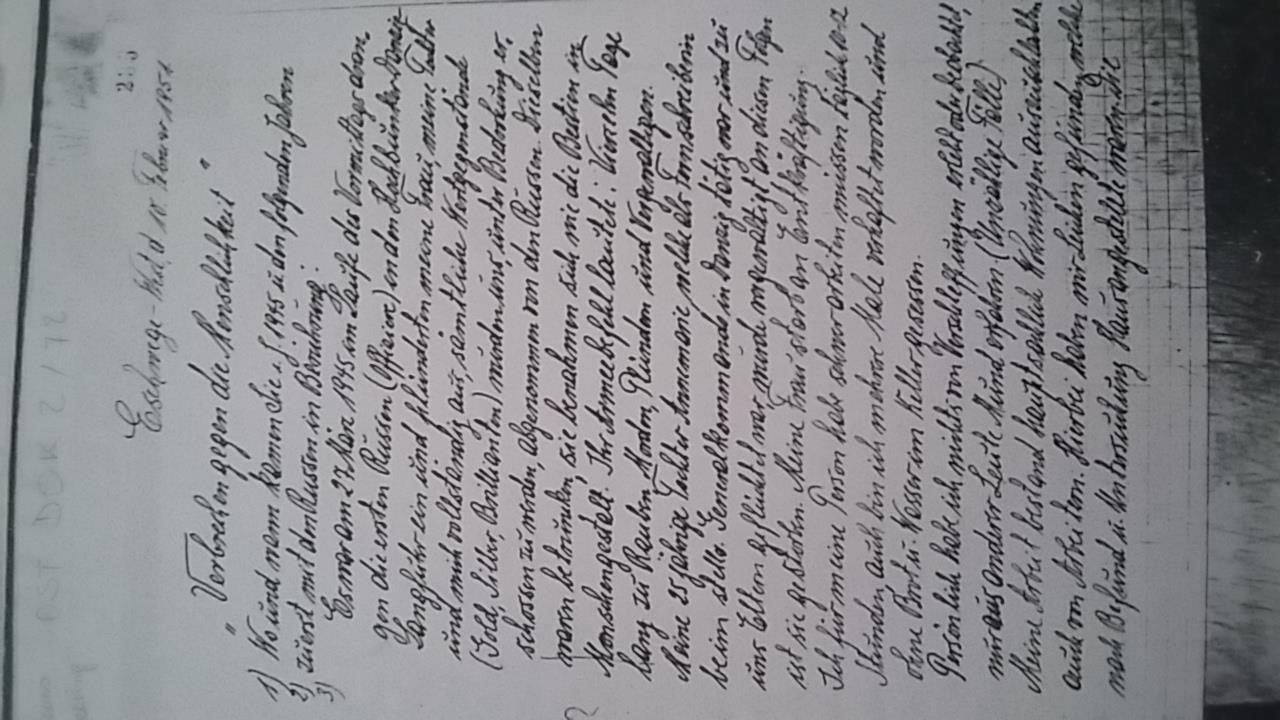 OST DOK 2/72
Eschwege-West, d. 10. Februar 1951.
" Verbrechen gegen die Menschlichkeit "
1) Wo und wann kamen Sie i. J. 1945 u. den folgenden Jahren
2) zuerst mit den Russen in Berührung?
3) Es war am 27. März 1945 im Laufe des Vormittags dran-
gen die ersten Russen (Offiziere) in den Hochbunker Danzig-
Langfuhr ein und plünderten meine Frau, meine Tochter
und mich vollständig aus, sämtliche Wertgegenstände
(Gold, Silber, Brillianten) wurden uns, unter Bedrohung er-
schossen zu werden, abgenommen von den Russen. Dieselben
waren betrunken, sie benahmen sich, wie die Bestien in
Menschengestalt. Ihr Armeebefehl lautete: Vierzehn Tage
lang zu Rauben, Morden, Plündern und Vergewaltigen.
Meine 25 jährige Tochter Annemarie, welche als
beim stellv. Generalkommando in Danzig tätig war und zu
uns Eltern geflüchtet war, wurde vergewaltigt, an diesen Folgen
ist sie gestorben. Meine Frau starb an Entkräftigung.
Ich für meine Person habe schwer arbeiten müssen täglich
Stunden auch bin ich mehrere Male verhaftet worden und
ohne Brot u. Wasser im Keller gesessen.
Persönlich habe ich nichts von Verschleppungen
nur aus anderer Leute Mund erfahren (Unzählige Fälle)
Meine Arbeit bestand hauptsächlich Wohnungen
auch von Hierbei haben wir Leichen gefunden, welche
nach Befund u. Untersuchung waren. Die